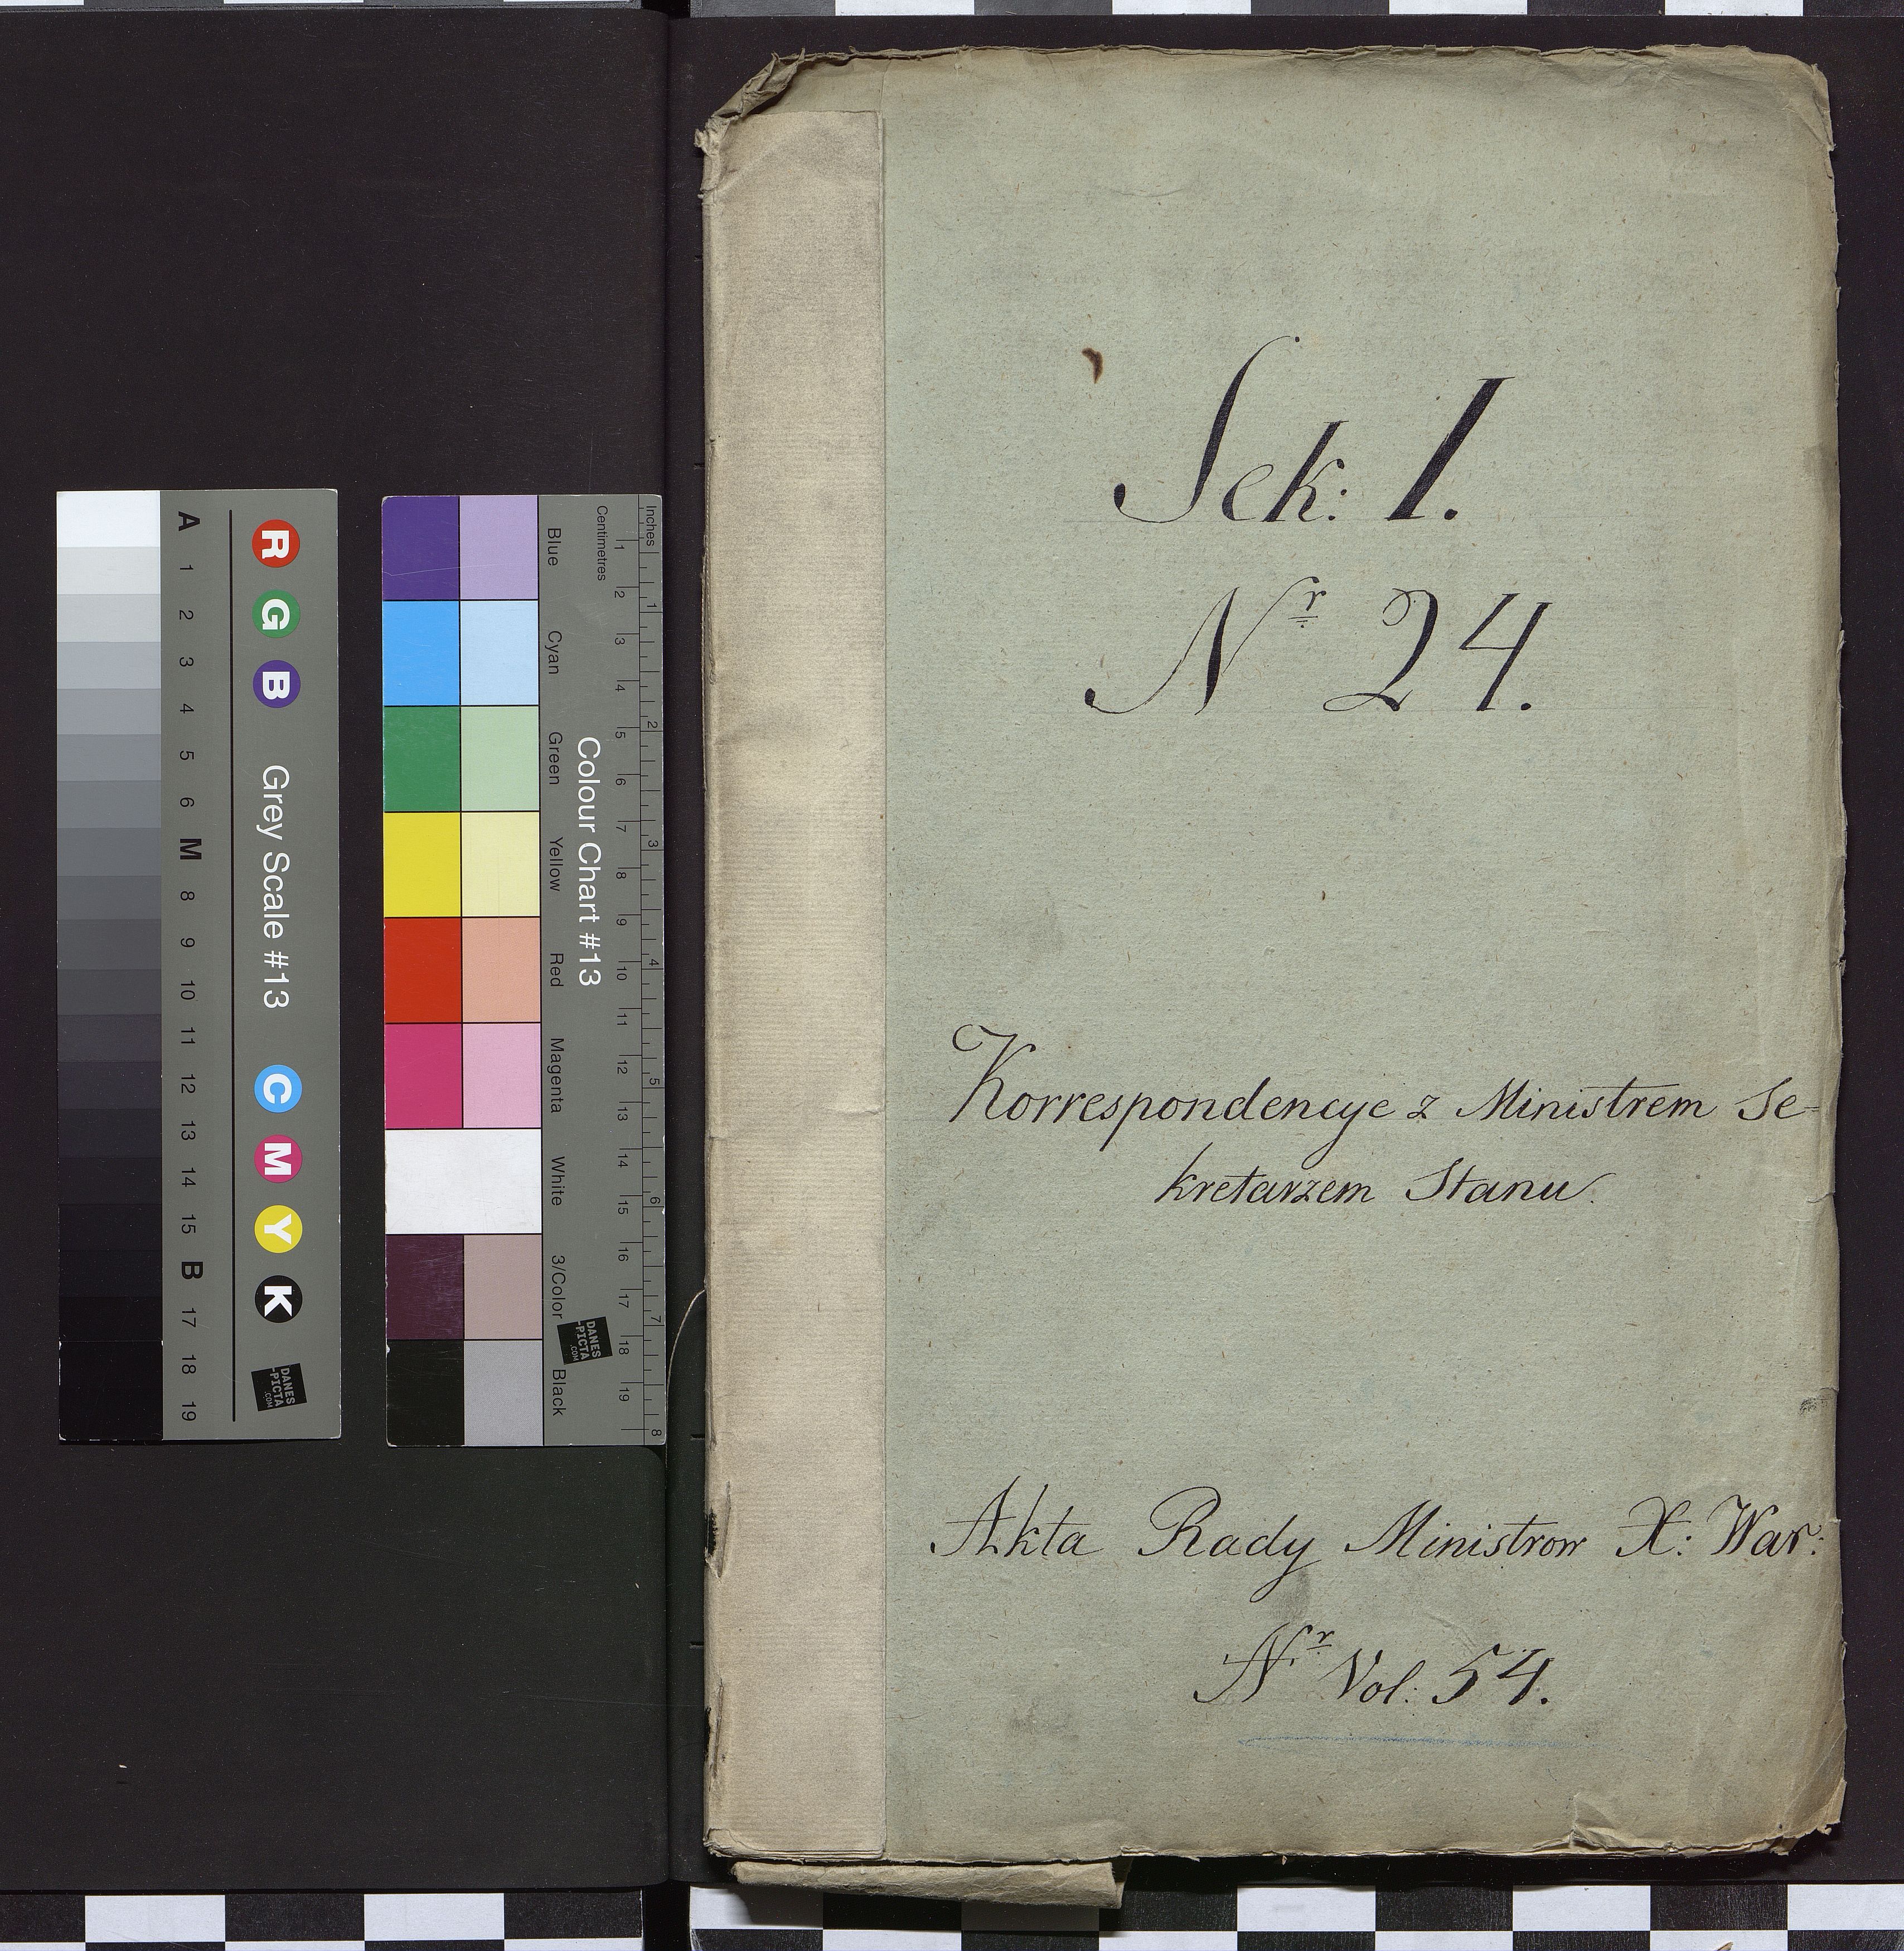 Sek: 1.
Nr 24.
Korrespondencye z Ministrem Se-
kretarzem Stanu.
Akta Rady Ministrow X: War:
Nr Vol: 54.
R G B Grey Scale #13 C M Y K
DANES
-PICTA
.COM
A 1 2 3 4 5 6 M 8 9 10 11 12 13 14 15 B 17 18 19
Colour Chart #13
Blue Cyan Green Yellow Red Magenta White 3/Color Black
Inches 1 2 3 4 5 6 7 8
Centimetres 1 2 3 4 5 6 7 8 9 10 11 12 13 14 15 16 17 18 19
DANES
-PICTA
.COM